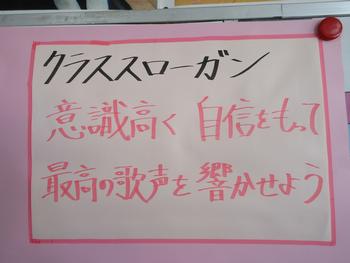 クラススローガン
意識高く 自信をもって
最高の歌声を 響かせよう